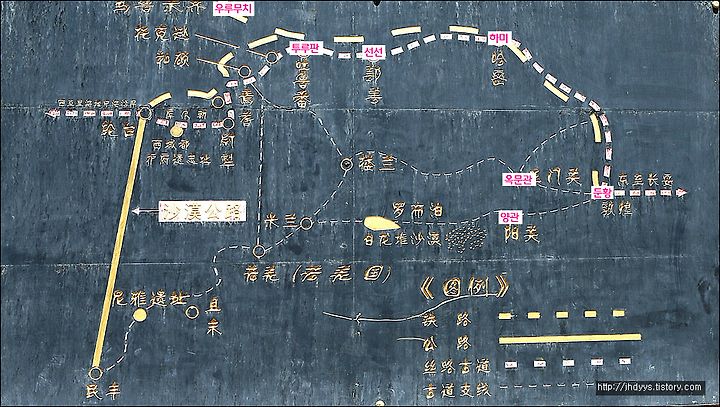 우루무치
乌鲁木齐
托克逊
和硕
투루판
선선
하미
吐鲁番
鄯善
哈密
焉耆
库尔勒
轮台
西域都护府遗址
尉犁
楼兰
옥문관
玉门关
둔황
东至长安
敦煌
沙漠公路
米兰
罗布泊
白龙堆沙漠
양관
阳关
若羌
尼雅遗址
且末
民丰
《图例》
铁 路
公 路
丝路古道
古道支线
http://jhdyys.tistory.com